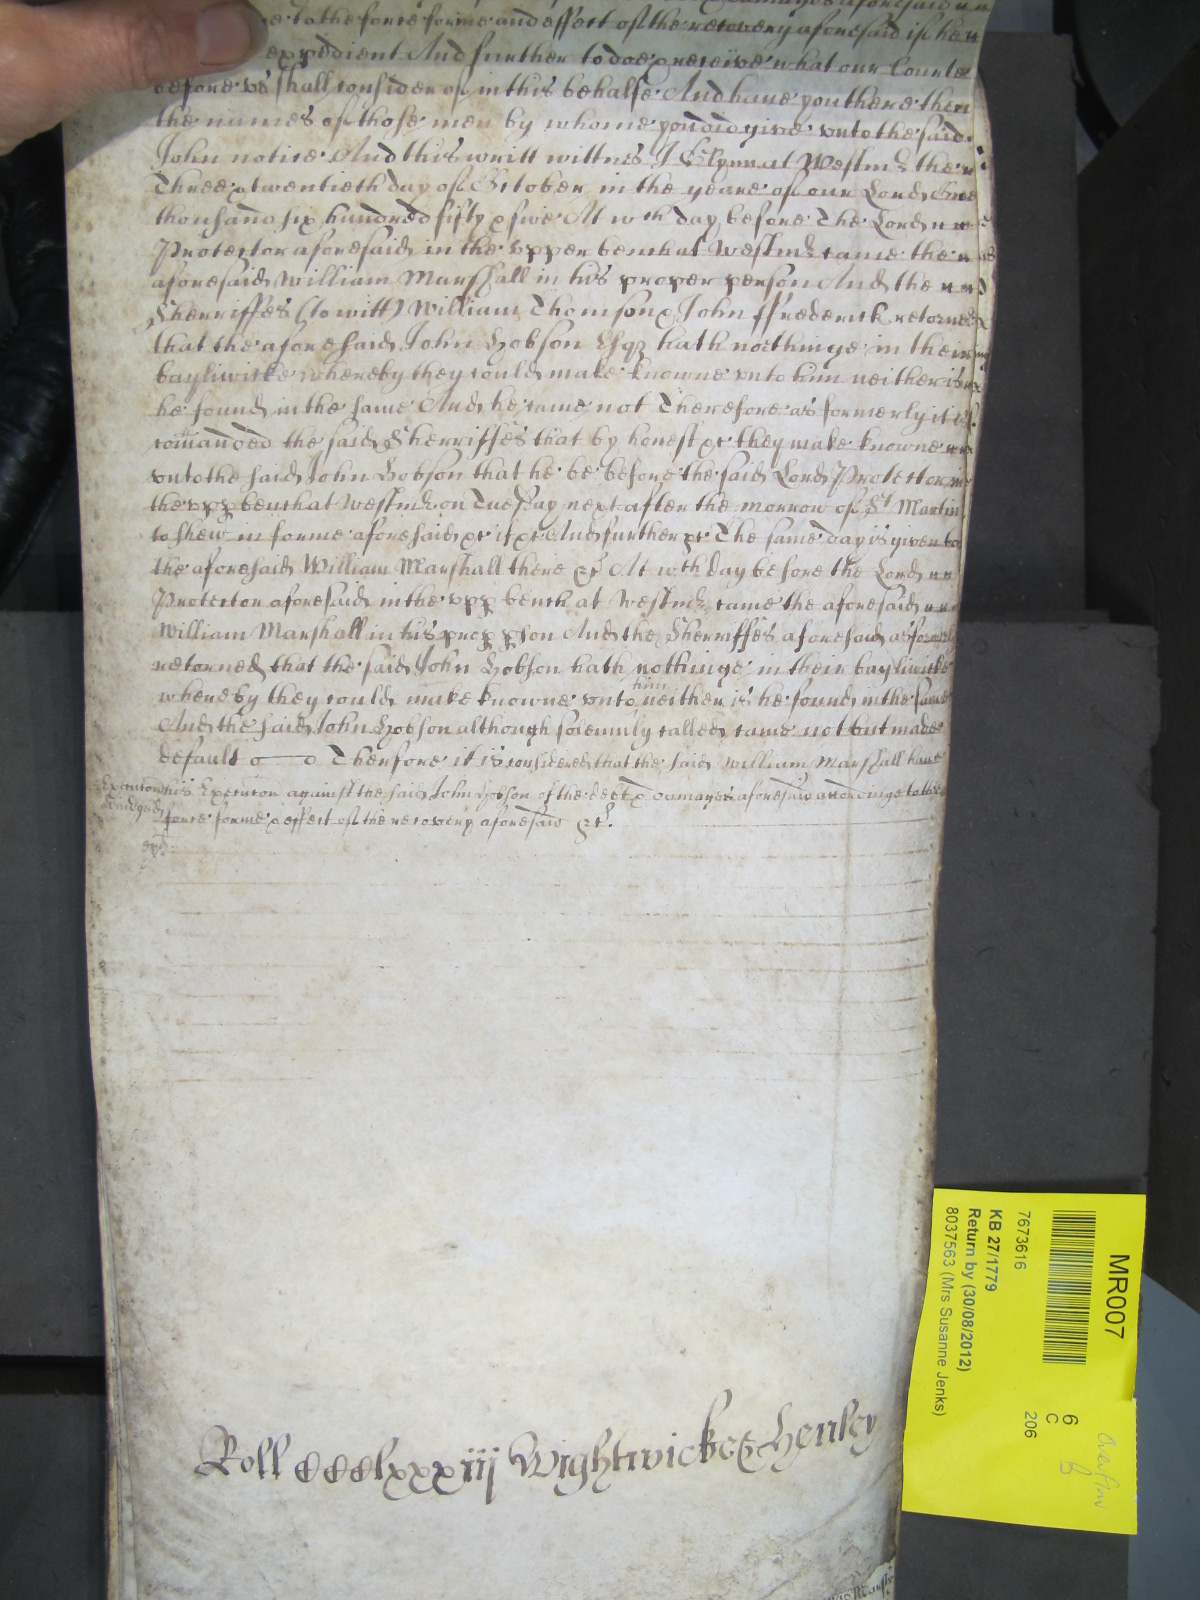 damages aforesaid
to the force forme and effect of the recovery aforesaid if hee
expedient And further to doe & receive what our Courte
before us shall consider of in this behalfe And have you there then
the names of those men by whome you did give unto the said
John notice And this writt wittnes J Glynn at Westmr the
Three & twentieth day of October in the yeare of our Lord One
thousand six hundred fifty & five At wch day before The Lord
Protector aforesaid in the upper bench at Westmr came the
aforesaid William Marshall in his proper person And the
Sherriffes (to witt) William Thomson & John ffrederick retorned
that the aforesaid John Hobson Esqr hath nothinge in their
bayliwicke whereby they could make knowne unto him neither is
he found in the same And he came not Therefore as formerly it is
comanded the said Sherriffes that by honest &c they make knowne
unto the said John Hobson that he be before the said Lord Protector in
the upp bench at Westmr on Tuesday next after the morrow of St Martin
to shew in forme aforesaid &c if &c And further &c The same day is given to
the aforesaid William Marshall there &c At wch day before the Lord
Protector aforesaid in the upp bench at Westmr came the aforesaid
William Marshall in his prop pson And the Sherriffes aforesaid as formerly
retorned that the said John Hobson hath nothinge in their bayliwicke
whereby they could make knowne unto him neither is he found in the same
And the said John Hobson although solemnly called came not but made
default Therfore it is considered that the said William Marshall have
Execucon his Execucon against the said John Hobson of the debt & damages aforesaid accordinge to the
adiudged force forme & effect of the recovery aforesaid &c.
Roll CCClxxxiij Wightwicke & Henley
MR007
6
C
206
Overflow
7673616
KB 27/1779
Return by (30/08/2012)
8037563 (Mrs Susanne Jenks)